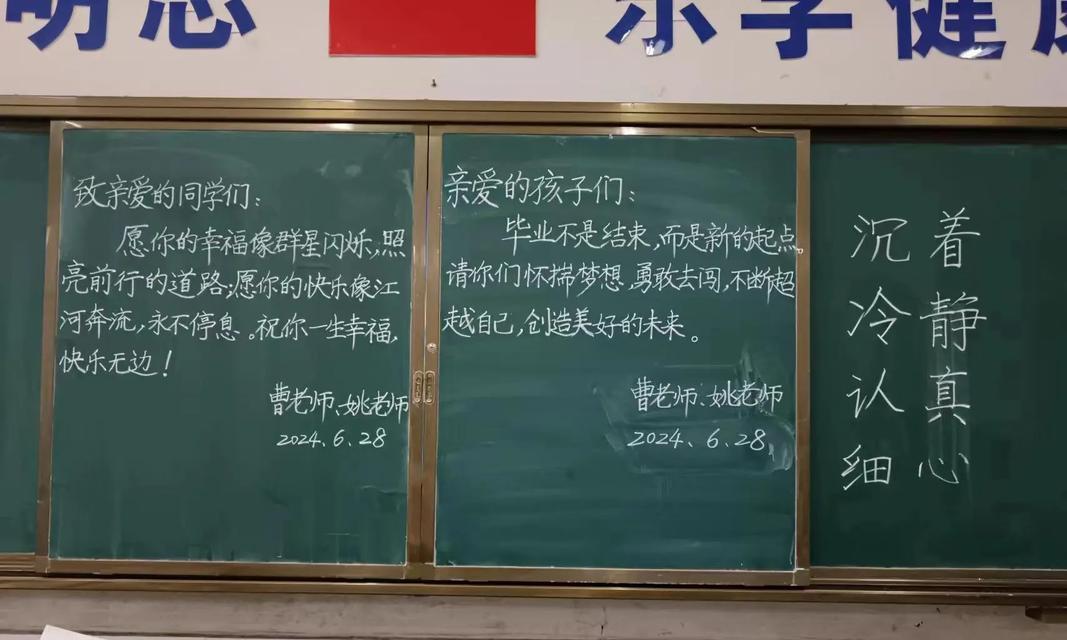 明志
乐学健康
致亲爱的同学们：
愿你的幸福像群星闪烁，照
亮前行的道路；愿你的快乐像江
河奔流，永不停息。祝你一生幸福，
快乐无边！
曹老师、姚老师
2024.6.28
亲爱的孩子们：
毕业不是结束，而是新的起点。
请你们怀揣梦想，勇敢去闯，不断超
越自己，创造美好的未来。
曹老师、姚老师
2024.6.28
沉着
冷静
认真
细心